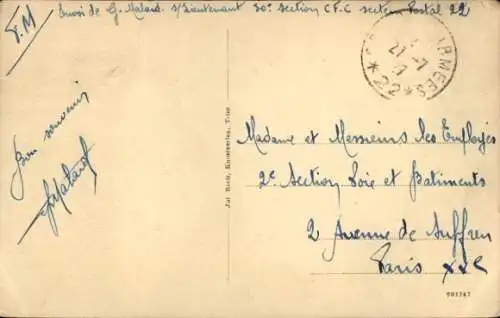 F.M
Envoi de G. Malard. S/Lieutenant 30e Section C.F.C secteur Postal 22
ARMEES
21-7
* 22 *
Bon souvenir
GMalard
Jul. Bach, Kunstverlag, Trier
Madame et Messieurs les Employés
2e Section Voie et Batiments
2 Avenue de Suffren
Paris XVe
901747